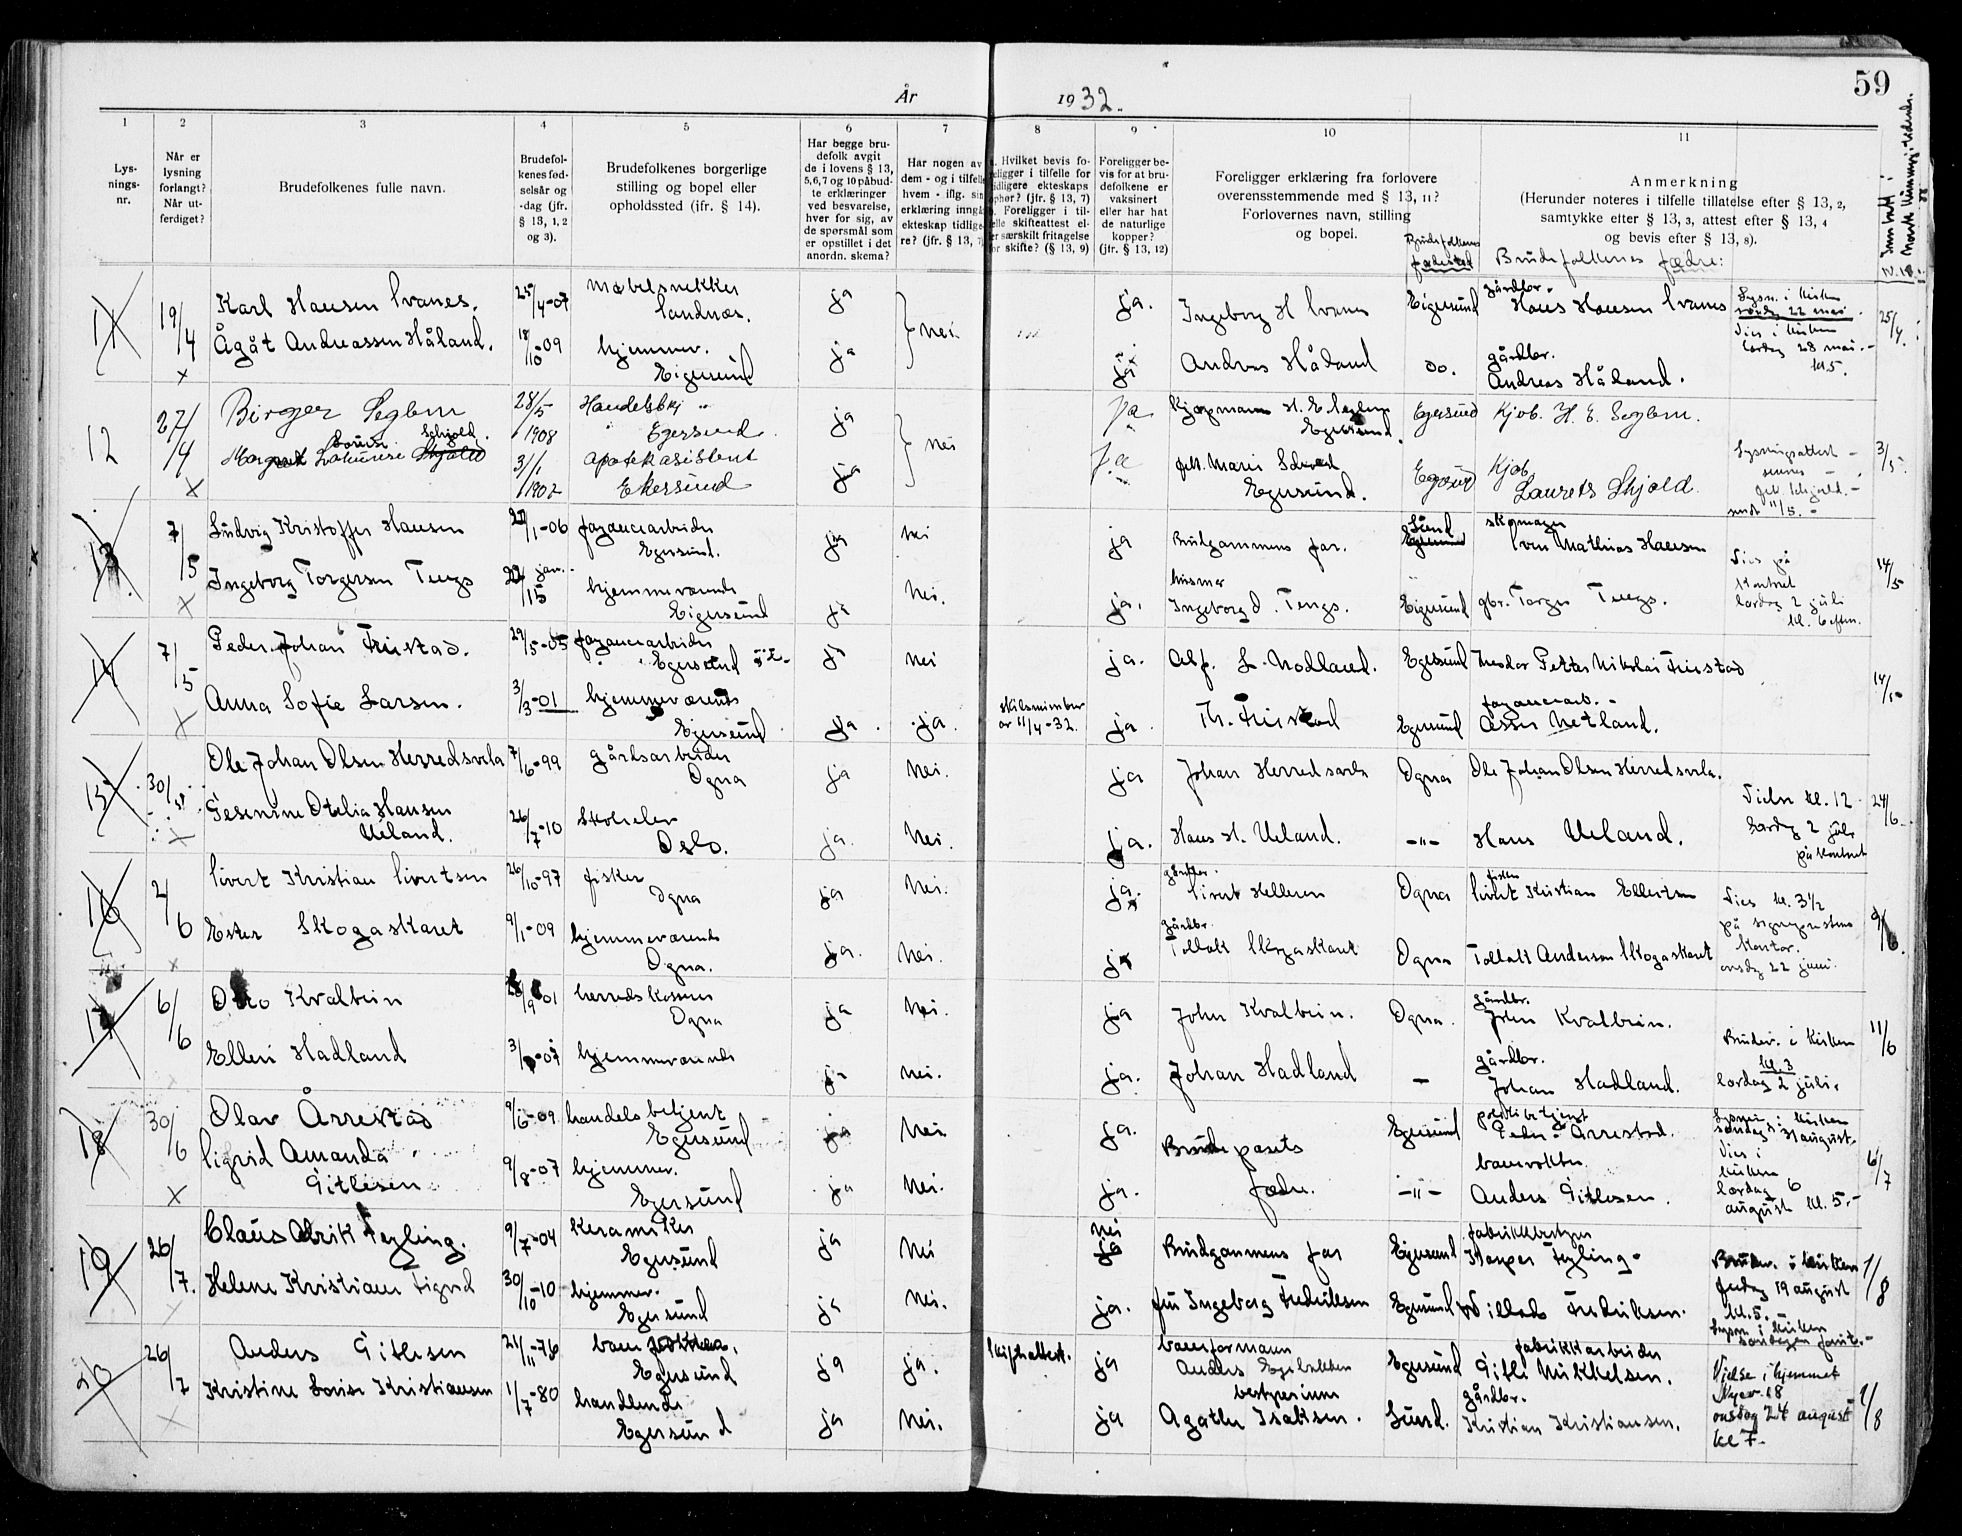 59
År 1932.
1 2 3 4 5 6 7 8 9 10 11
Lys-
nings-
nr.
Når er
lysning
forlangt?
Når ut-
ferdiget?
Brudefolkenes fulle navn.
Brudefol-
kenes fød-
selsår og
-dag (jfr.
§ 13, 1, 2
og 3).
Brudefolkenes borgerlige
stilling og bopel eller
opholdssted (ifr. § 14).
Har begge bru-
defolk avgit
de i lovens § 13,
5,6,7 og 10 påbud-
te erklæringer
ved besvarelse,
hver for sig, av
de spørsmål som
er opstillet i det
anordn. skema?
Har nogen av
dem - og i tilfelle
hvem - iflg. sin
erklæring inngå
ekteskap tidlige-
re? (jfr. § 13, 7
Hvilket bevis fo-
religger i tilfelle for
tidligere ekteskaps
ophør? (jfr. § 13, 7)
Foreligger i til-
elle skifteattest el-
er særskilt fritagelse
or skifte? (§ 13, 9)
Foreligger be-
vis for at bru-
defolkene er
vaksinert
eller har hat
de naturlige
kopper?
(jfr. § 13, 12)
Foreligger erklæring fra forlovere
overensstemmende med § 13, 11?
Forlovernes navn, stilling
og bopel.
Brudefolkenes
fødested
Anmerkning
(Herunder noteres i tilfelle tillatelse efter § 13, 2,
samtykke efter § 13, 3, attest efter § 13, 4
og bevis efter § 13, 8).
Brudefolkenes fædre:
11 19/4 Karl Hansen Svanes. 25/4-07 Møbelsnekker Sandnæs. ja nei ja. Ingeborg H Svanes Eigersund gårdbr. Hans Hansen Svanes Lysn. i kirken søndag 22 mai. 25/4
Ågåt Andreassen Håland. 18/10-09 hjemmev. Eigersund ja ja Andreas Håland do. gårdbr. Andreas Håland. Vies i kirken lørdag 28 mai. kl. 5.
12 27/4 Birger Seglem 28/5 1908 Handelsbtj " Egersund ja nei ja Kjøpmann H. E. Seglem Egersund. Egersund Kjøb. H. E. Seglem. 3/5
Margret Louise Schjold. 3/1 1902 apotekasistent Ekersund ja ja frk. Marie Egersund. Egersund Kjøb. Laurits Skjold. Lysningsattest sendt 11/5.
13 7/5 Ludvig Kristoffer Hansen 27/1-06 fayancearbeider Egersund. ja nei ja Brudgommens far. Lund skomager Sven Mathias Hansen 14/5
Ingeborg Torgersen Tengs 22 jan. 15 hjemmeværende Eigersund ja nei. ja. husmor Ingeborg d. Tengs. Eigersund gbr. Torger Tengs. Vies på kontoret lørdag 2 juli kl. 6 eftm.
14 7/5 Peder Johan Friestad. 29/5-05 fayancearbeider Egersund ja nei ja. Alf. L. Nodland. Egersund Teodor Petter Nikolai Friestad 14/5
Anna Sofie Larsen. 3/3-01 hjemmeværende Egersund ja. ja. 11/4-32. ja. Th. Friestad Egersund fayancearb. Asser Netland.
15 30/5 Ole Johan Olsen Herredsvela 7/6-99 gårdsarbeider Ogna ja nei. ja Johan Herredsvela Ogna Ole Johan Olsen Herredsvela. 24/6
Gesenine Otelia Hansen Ueland. 26/7-10 Oslo. ja. nei. ja. Hans H. Ueland. -"- Hans Ueland. Vielse kl. 12 lørdag 2 juli på kontoret
16 2/6 Sivert Kristian Sivertsen 26/10-97 fisker Ogna ja nei. ja. gårdbr. Sivert Helleren Ogna fisker Sivert Kristian Ellertsen Vies kl. 3½ 9/6
Ester Skogaskaret 9/1-09 hjemmeværende Ogna. ja. nei. ja gårdbr. Tollak Skogaskaret Ogna Tollak Anderson Skogaskaret på sogneprestens kontor. onsdag 22 juni.
17 6/6 Otto Kvalbein 9-01 herredskasserer Ogna ja nei. ja John Kvalbein. Ogna. gårdbr. John Kvalbein. 11/6
Elleri Hadland 07 hjemmeværende ja nei. ja. Johan Hadland - gårdbr. Johan Hadland. Brudev. i kirken kl. 3 lørdag 2 juli.
18 30/6 Olav Årrestad 9/6-09 handelsbetjent Egersund ja nei ja. Brudeparets Egersund politibetjent Peder Årrestad. 6/7
Sigrid Amanda Gitlesen 9/8-07 hjemmev. Egersund ja nei. ja. fædre. -"- banevokter. Anders Gitlesen. Vies i kirken lørdag 6 august kl. 5.
19 26/7. Claus Alrik Feyling. 9/7-04 keramiker Egersund ja nei nei ja Brudgommens far Egersund fabrikkbestyrer Kasper Feyling 1/8
Helene Kristiane Sigrid 30/10-10 hjemmev. Egersund ja nei. ja. fru Ingeborg Fredriksen Egersund Willads Fredriksen. Brudev. i kirken fredag 19 august kl. 5. Lysn. i kirken søndagen forut.
20 26/7 Anders Gitlesen 21/11-76 Egersund ja ja. skifteattest. ja baneformann Anders Egelandsen Egersund fabrikkarbeider Gitle Mikkelsen. Vielse i hjemmet 1/8
Kristine Lovise Kristiansen 1/7-80 handlende Egersund ja nei. ja bestyrerinne Agathe Isaksen. Lund. gårdbr. Kristian Kristiansen. Nyev. 18 onsdag 24 august kl 7.